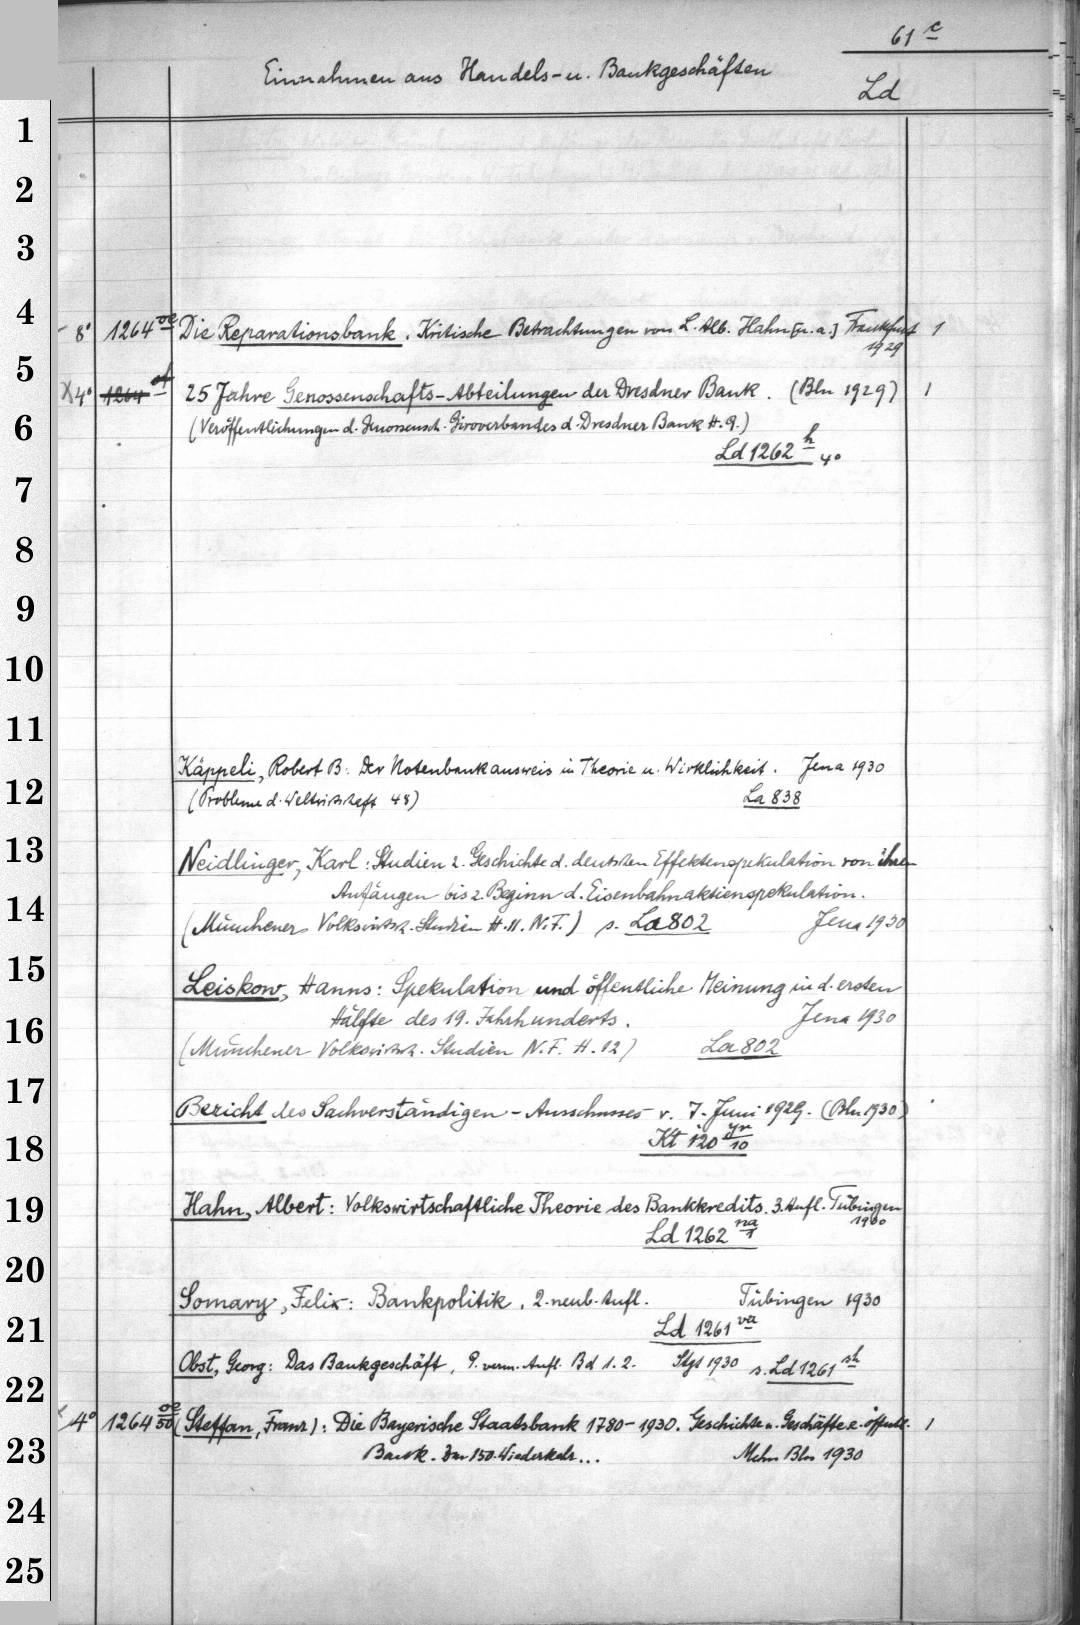 61 c
Einnahmen aus Handels- u. Bankgeschäften
Ld
1
2
3
4
8° 1264 oe Die Reparationsbank. Kritische Betrachtungen von L. Alb. Hahn [u. a.] Frankfurt 1
1929
5
4° 1264 of 25 Jahre Genossenschafts-Abteilungen der Dresdner Bank. (Bln 1929) 1
6
(Veröffentlichungen d. Genossensch. Giroverbandes d. Dresdner Bank H. 9.)
Ld 1262 h 4°
7
8
9
10
11
Käppeli, Robert B: Der Notenbankausweis in Theorie u. Wirklichkeit. Jena 1930
12
(Probleme d. Weltwirtschaft 48) La 838
13
Neidlinger, Karl: Studien z. Geschichte d. deutschen Effektenspekulation von ihren
Anfängen bis z. Beginn d. Eisenbahnaktienspekulation.
14
(Münchener Volkswirtsch. Studien H. 11. N.F.) s. La 802 Jena 1930
15
Leiskow, Hanns: Spekulation und öffentliche Meinung in d. ersten
Hälfte des 19. Jahrhunderts. Jena 1930
16
(Münchener Volkswirtsch. Studien N.F. H. 12) La 802
17
Bericht des Sachverständigen-Ausschusses v. 7. Juni 1929. (Bln 1930)
Kt 120 yr 10
18
19
Hahn, Albert: Volkswirtschaftliche Theorie des Bankkredits. 3. Aufl. Tübingen
1930
Ld 1262 na 1
20
Somary, Felix: Bankpolitik. 2. neub. Aufl. Tübingen 1930
21
Ld 1261 va
Obst, Georg: Das Bankgeschäft, 9. verm. Aufl. Bd 1. 2. Stgt 1930 s. Ld 1261 sh
22
4° 1264 oe 50 (Steffan, Franz): Die Bayerische Staatsbank 1780-1930. Geschichte u. Geschäfte e. öffentl. 1
23
Bank. Zur 150. Wiederkehr... Mchn Bln 1930
24
25